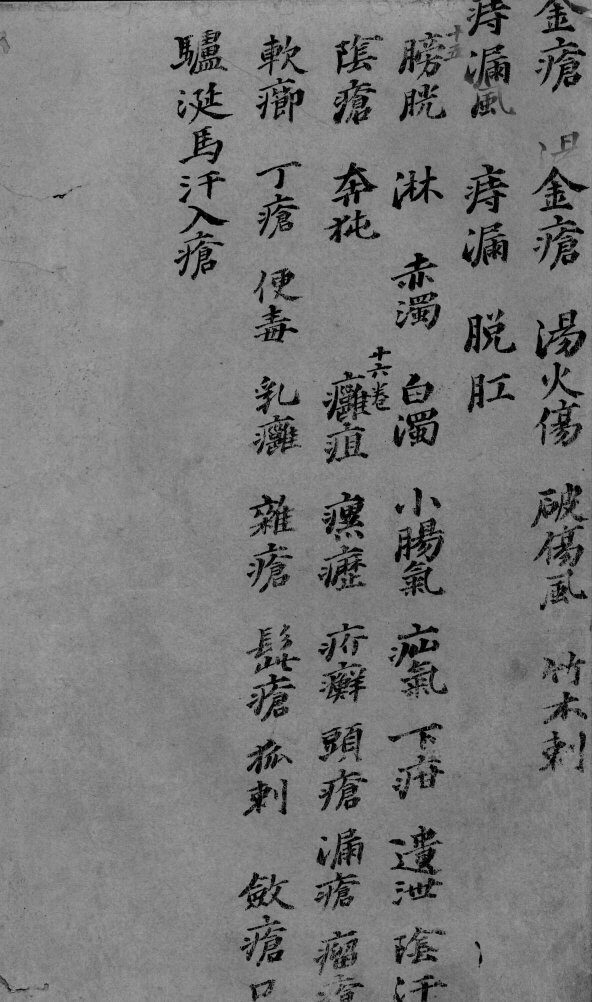 金瘡 金瘡 湯火傷 破傷風 竹木刺
痔漏風 痔漏 脱肛
十五
膀胱 淋 赤濁 白濁 小腸氣 疝氣 下疳 遺泄 陰汗
陰瘡 奔㹠 十六卷 癰疽 瘰癧 疥癬 頭瘡 漏瘡 瘤
軟癤 丁瘡 便毒 乳癰 雜瘡 髭瘡 狐刺 斂瘡口
驢涎馬汗入瘡